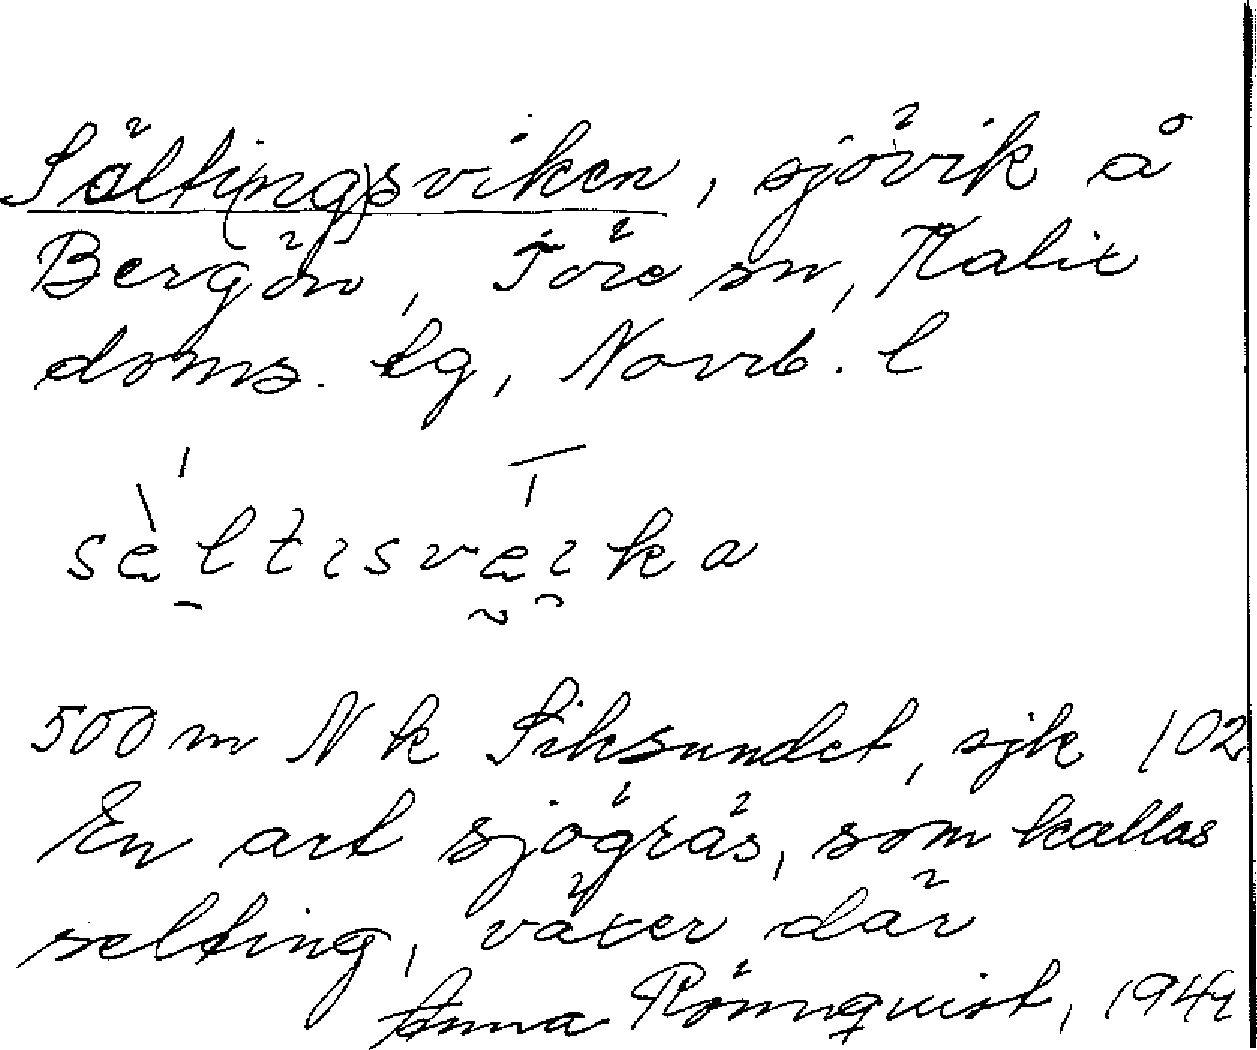 Sälti(ng)sviken, sjövik å
Bergön, Töre sn, Kalix
doms. lg, Norrb. l
sèltısveıka
500 m N k Siksundet, sjk 102.
En art sjögräs, som kallas
selting, växer där
Anna Rönnquist, 1944